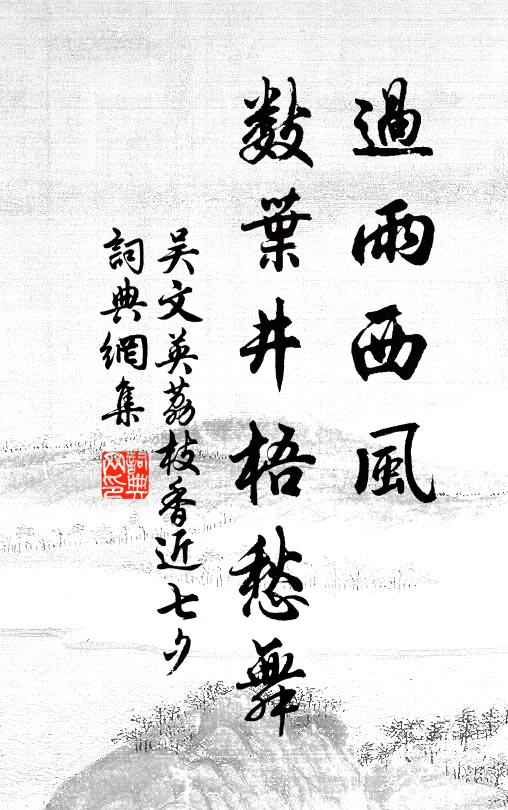 過雨西風
數葉井梧愁舞
吴文英荔枝香近七夕
詞典網集